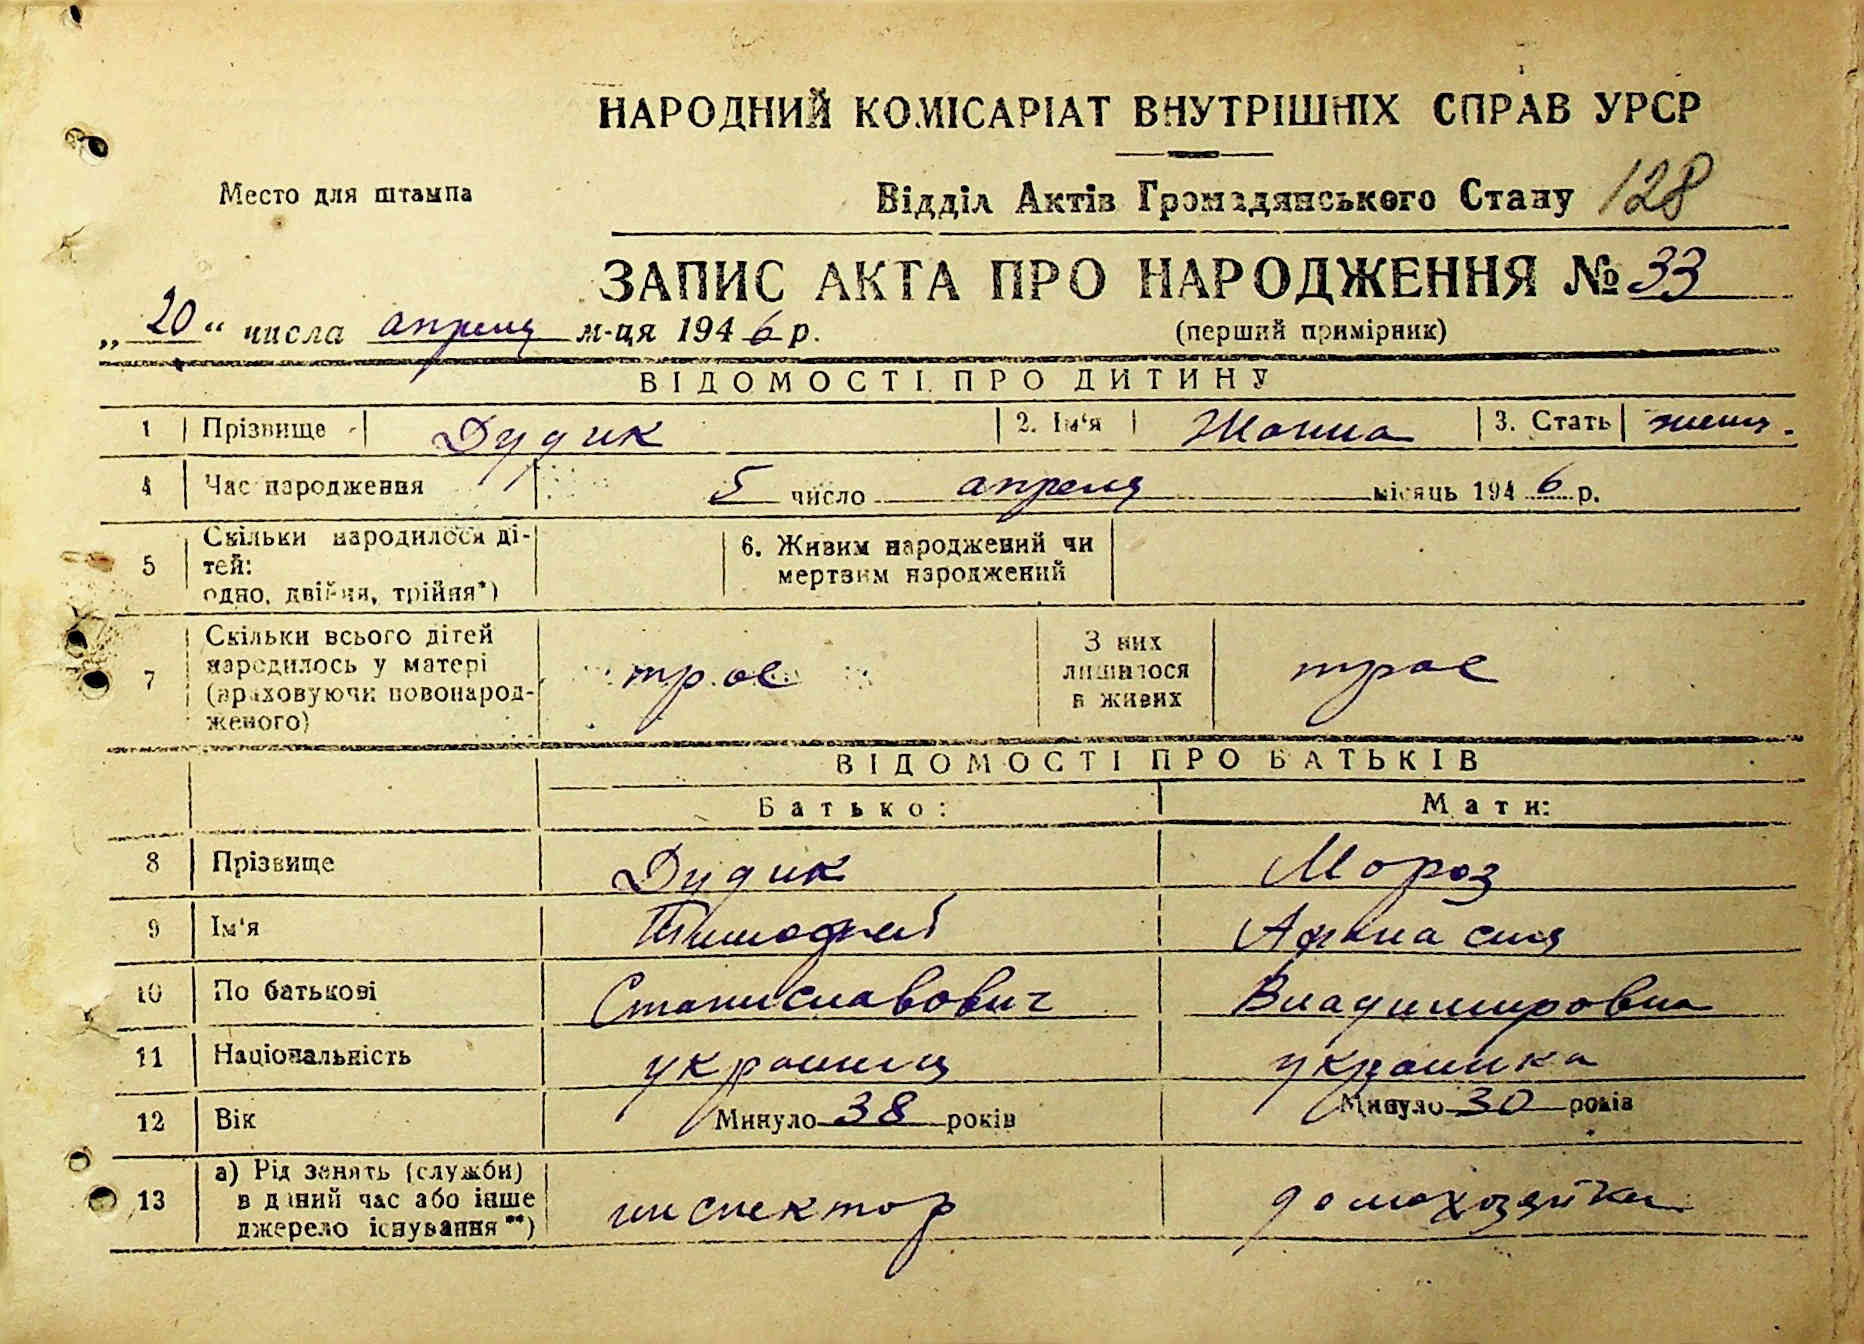 НАРОДНИЙ КОМІСАРІАТ ВНУТРІШНІХ СПРАВ УРСР
Место для штампа
Відділ Актів Громадянського Стану 128
ЗАПИС АКТА ПРО НАРОДЖЕННЯ № 33
„20“ числа апреля м-ця 1946 р.
(перший примірник)
ВІДОМОСТІ ПРО ДИТИНУ
1 Прізвище Дудик 2. Ім'я Жанна 3. Стать женщ.
4 Час народження 5 число апреля місяць 1946 р.
5 Скільки народилося ді-
тей:
одно, двійня, трійня*)
6. Живим народжений чи
мертвим народжений
7 Скільки всього дітей
народилось у матері
(враховуючи новонарод-
женого)
трое
З них
лишилося
в живих
трое
ВІДОМОСТІ ПРО БАТЬКІВ
Батько: Мати:
8 Прізвище Дудик Мороз
9 Ім'я Тимофей Афанасия
10 По батькові Станиславович Владимировна
11 Національність украинц украинка
12 Вік Минуло 38 років Минуло 30 років
13 а) Рід занять (служби)
в даний час або інше
джерело існування**)
инспектор домохозяйка